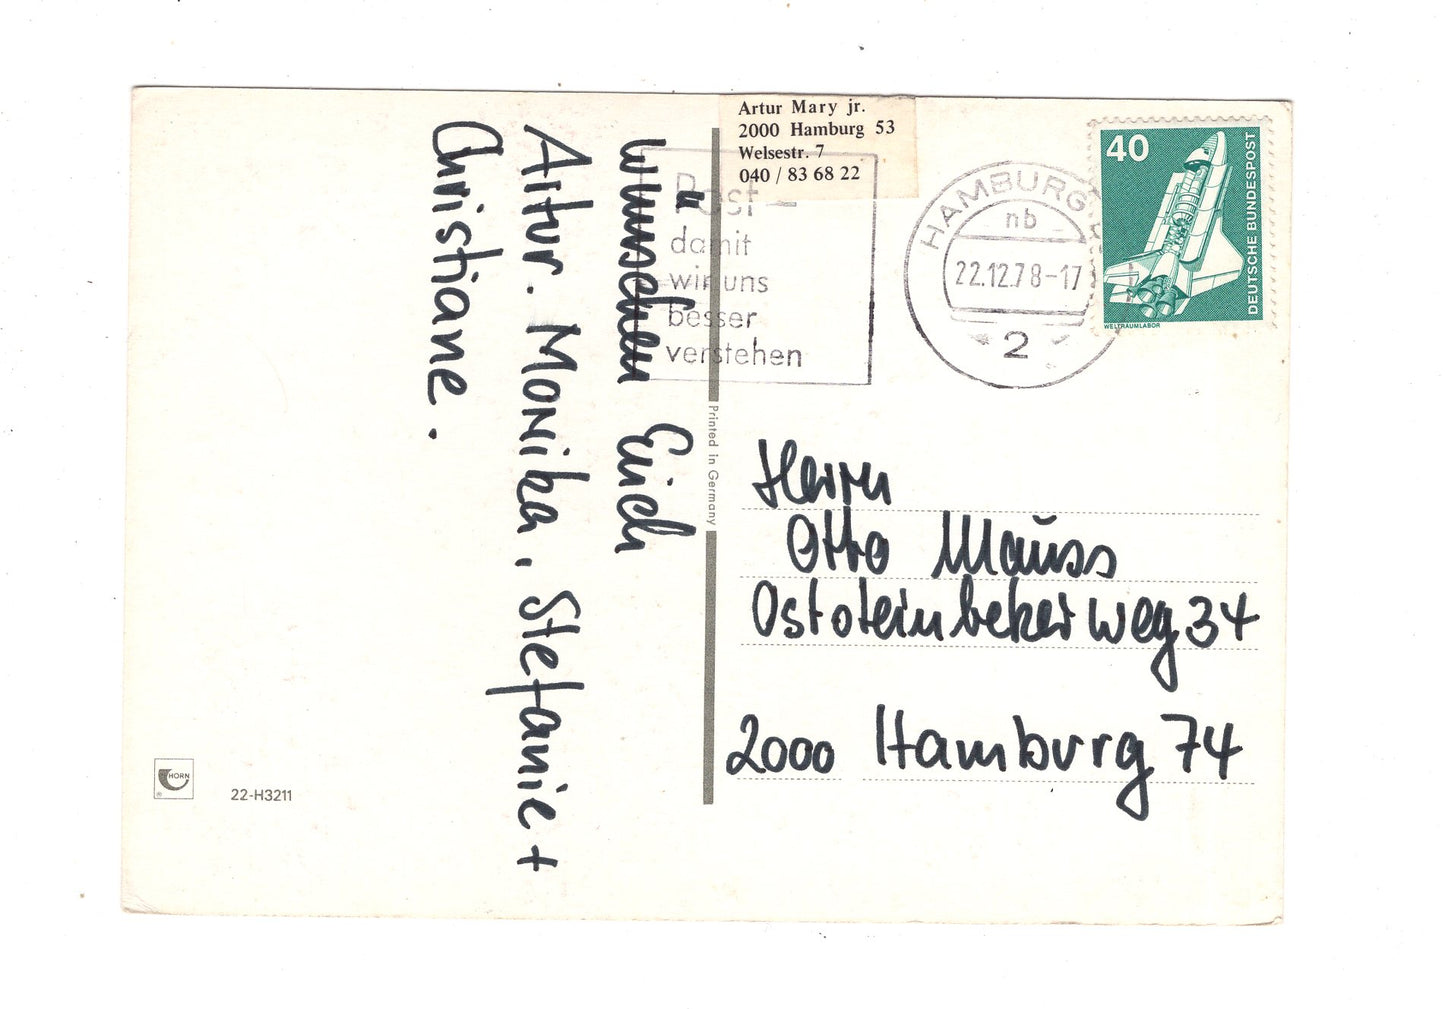 Artur Mary jr.
2000 Hamburg 53
Welsestr. 7
040 / 83 68 22
Post –
damit
wir uns
besser
verstehen
HAMBURG
nb
22.12.78-17
2
40
DEUTSCHE BUNDESPOST
WELTRAUMLABOR
wünschen Euch
Artur. Monika, Stefanie +
Christiane.
Printed in Germany
Herrn
Otto Mauss
Oststeinbeker Weg 34
2000 Hamburg 74
HORN
22-H3211